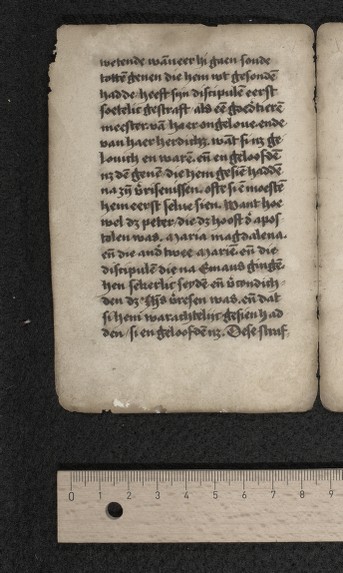 wetende wāneer hi gaen soude
tottē genen die hem wt gesondē
hadde heeft sijn discipulē eerst
soetelic gestraft als eē goedtierē
meester. vā haer ongeloue ende
van haer herdicҺʒ. wāt si nʒ ge
louich en warē. eñ en geloofdē
nʒ den genē die hem gesiē haddē
na zij v̄risenissen. ofte si ē moestē
hem eerst selue sien. Want hoe
wel dʒ peter die dʒ hooft d̄ apos
tolen was. maria magdalena.
eñ die and̄ twee mariē. eñ die
discipulē die na Emaus gingē
hen sekerlic seydē eñ v̄condich
den dʒ ihs v̄resen was. eñ dat
si hem warachtelijc gesien had
den / si en geloofdē nʒ. Dese straf
0 1 2 3 4 5 6 7 8 9